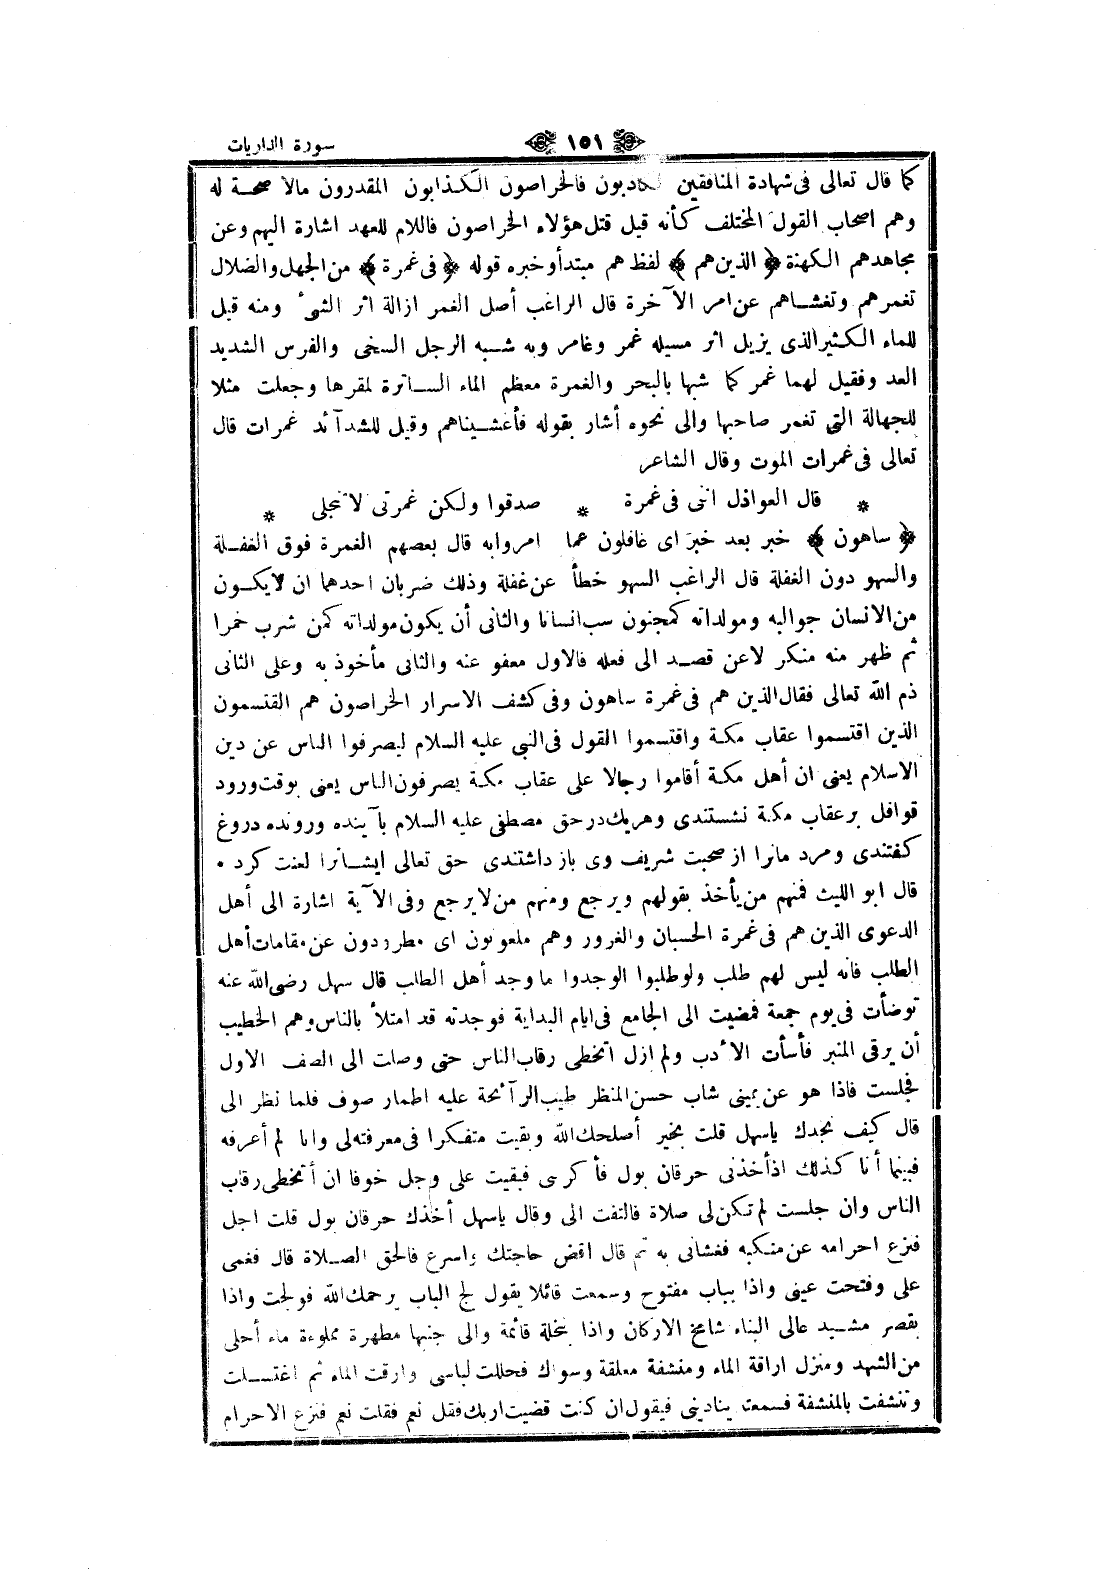 سورة الذاريات ١٥١
كما قال تعالى فى شهادة المنافقين لكاذبون فالخراصون الكذابون المقدرون مالا صحة له
وهم اصحاب القول المختلف كأنه قيل قتل هؤلاء الخراصون فاللام للعهد اشارة اليهم وعن
مجاهدهم الكهنة ﴿ الذين هم ﴾ لفظ هم مبتدأ وخبره قوله ﴿ فى غمرة ﴾ من الجهل والضلال
تغمرهم وتغشاهم عن امر الآخرة قال الراغب أصل الغمر ازالة اثر الشئ ومنه قيل
للماء الكثير الذى يزيل اثر مسيله غمر وغامر وبه شبه الرجل السخى والفرس الشديد
العد وفقيل لهما غمر كما شبها بالبحر والغمرة معظم الماء الساترة لمقرها وجعلت مثلا
للجهالة التى تغمر صاحبها والى نحوه أشار بقوله فأغشيناهم وقيل للشدآئد غمرات قال
تعالى فى غمرات الموت وقال الشاعر
* قال العواذل اننى فى غمرة * صدقوا ولكن غمرتى لا تنجلى *
﴿ ساهون ﴾ خبر بعد خبر اى غافلون عما امروابه قال بعصهم الغمرة فوق الغفلة
والسهو دون الغفلة قال الراغب السهو خطأ عن غفلة وذلك ضربان احدهما ان لا يكون
من الانسان جوالبه ومولداته كمجنون سب انسانا والثانى أن يكون مولداته كمن شرب خمرا
ثم ظهر منه منكر لاعن قصد الى فعله فالاول معفو عنه والثانى مأخوذ به وعلى الثانى
ذم الله تعالى فقال الذين هم فى غمرة ساهون وفى كشف الاسرار الخراصون هم المقتسمون
الذين اقتسموا عقاب مكة واقتسموا القول فى النبي عليه السلام ليصرفوا الناس عن دين
الاسلام يعنى ان أهل مكة أقاموا رجالا على عقاب مكة يصرفون الناس يعنى بوقت ورود
قوافل بر عقاب مكة نشستندى وهريك در حق مصطفى عليه السلام بآينده ورونده دروغ
كفتندى ومرد مانرا از صحبت شريف وى باز داشتندى حق تعالى ايشانرا لعنت كرد *
قال ابو الليث فمنهم من يأخذ بقولهم ويرجع ومنهم من لا يرجع وفى الآية اشارة الى أهل
الدعوى الذين هم فى غمرة الحسبان والغرور وهم ملعونون اى مطرودون عن مقامات أهل
الطلب فانه ليس لهم طلب ولوطلبوا الوجدوا ما وجد أهل الطاب قال سهل رضى الله عنه
توضأت فى يوم جمعة فمضيت الى الجامع فى ايام البداية فوجدته قد امتلأ بالناس وهم الخطيب
أن يرقى المنبر فأسأت الأدب ولم ازل اتخطى رقاب الناس حتى وصلت الى الصف الاول
فجلست فاذا هو عن يمينى شاب حسن المنظر طيب الرآئحة عليه اطمار صوف فلما نظر الى
قال كيف تجدك ياسهل قلت بخير أصلحك الله وبقيت متفكرا فى معرفته لى وانا لم أعرفه
فبينما أنا كذلك اذأخذنى حرقان بول فأكربى فبقيت على وجل خوفا ان أتخطى رقاب
الناس وان جلست لم تكن لى صلاة فالتفت الى وقال ياسهل أخذك حرقان بول قلت اجل
فنزع احرامه عن منكبه فغشانى به ثم قال اقض حاجتك واسرع فالحق الصلاة قال فغمى
على وفتحت عينى واذا بباب مفتوح وسمعت قائلا يقول لج الباب يرحمك الله فولجت واذا
بقصر مشيد عالى البناء شامخ الاركان واذا بنخلة قائمة والى جنبها مطهرة مملوءة ماء أحلى
من الشهد ومنزل اراقة الماء ومنشفة معلقة وسواك فحللت لباسى وارقت الماء ثم اغتسلت
وتنشفت بالمنشفة فسمعت ينادينى فيقول ان كنت قضيت اربك فقل نعم فقلت نعم فنزع الاحرام